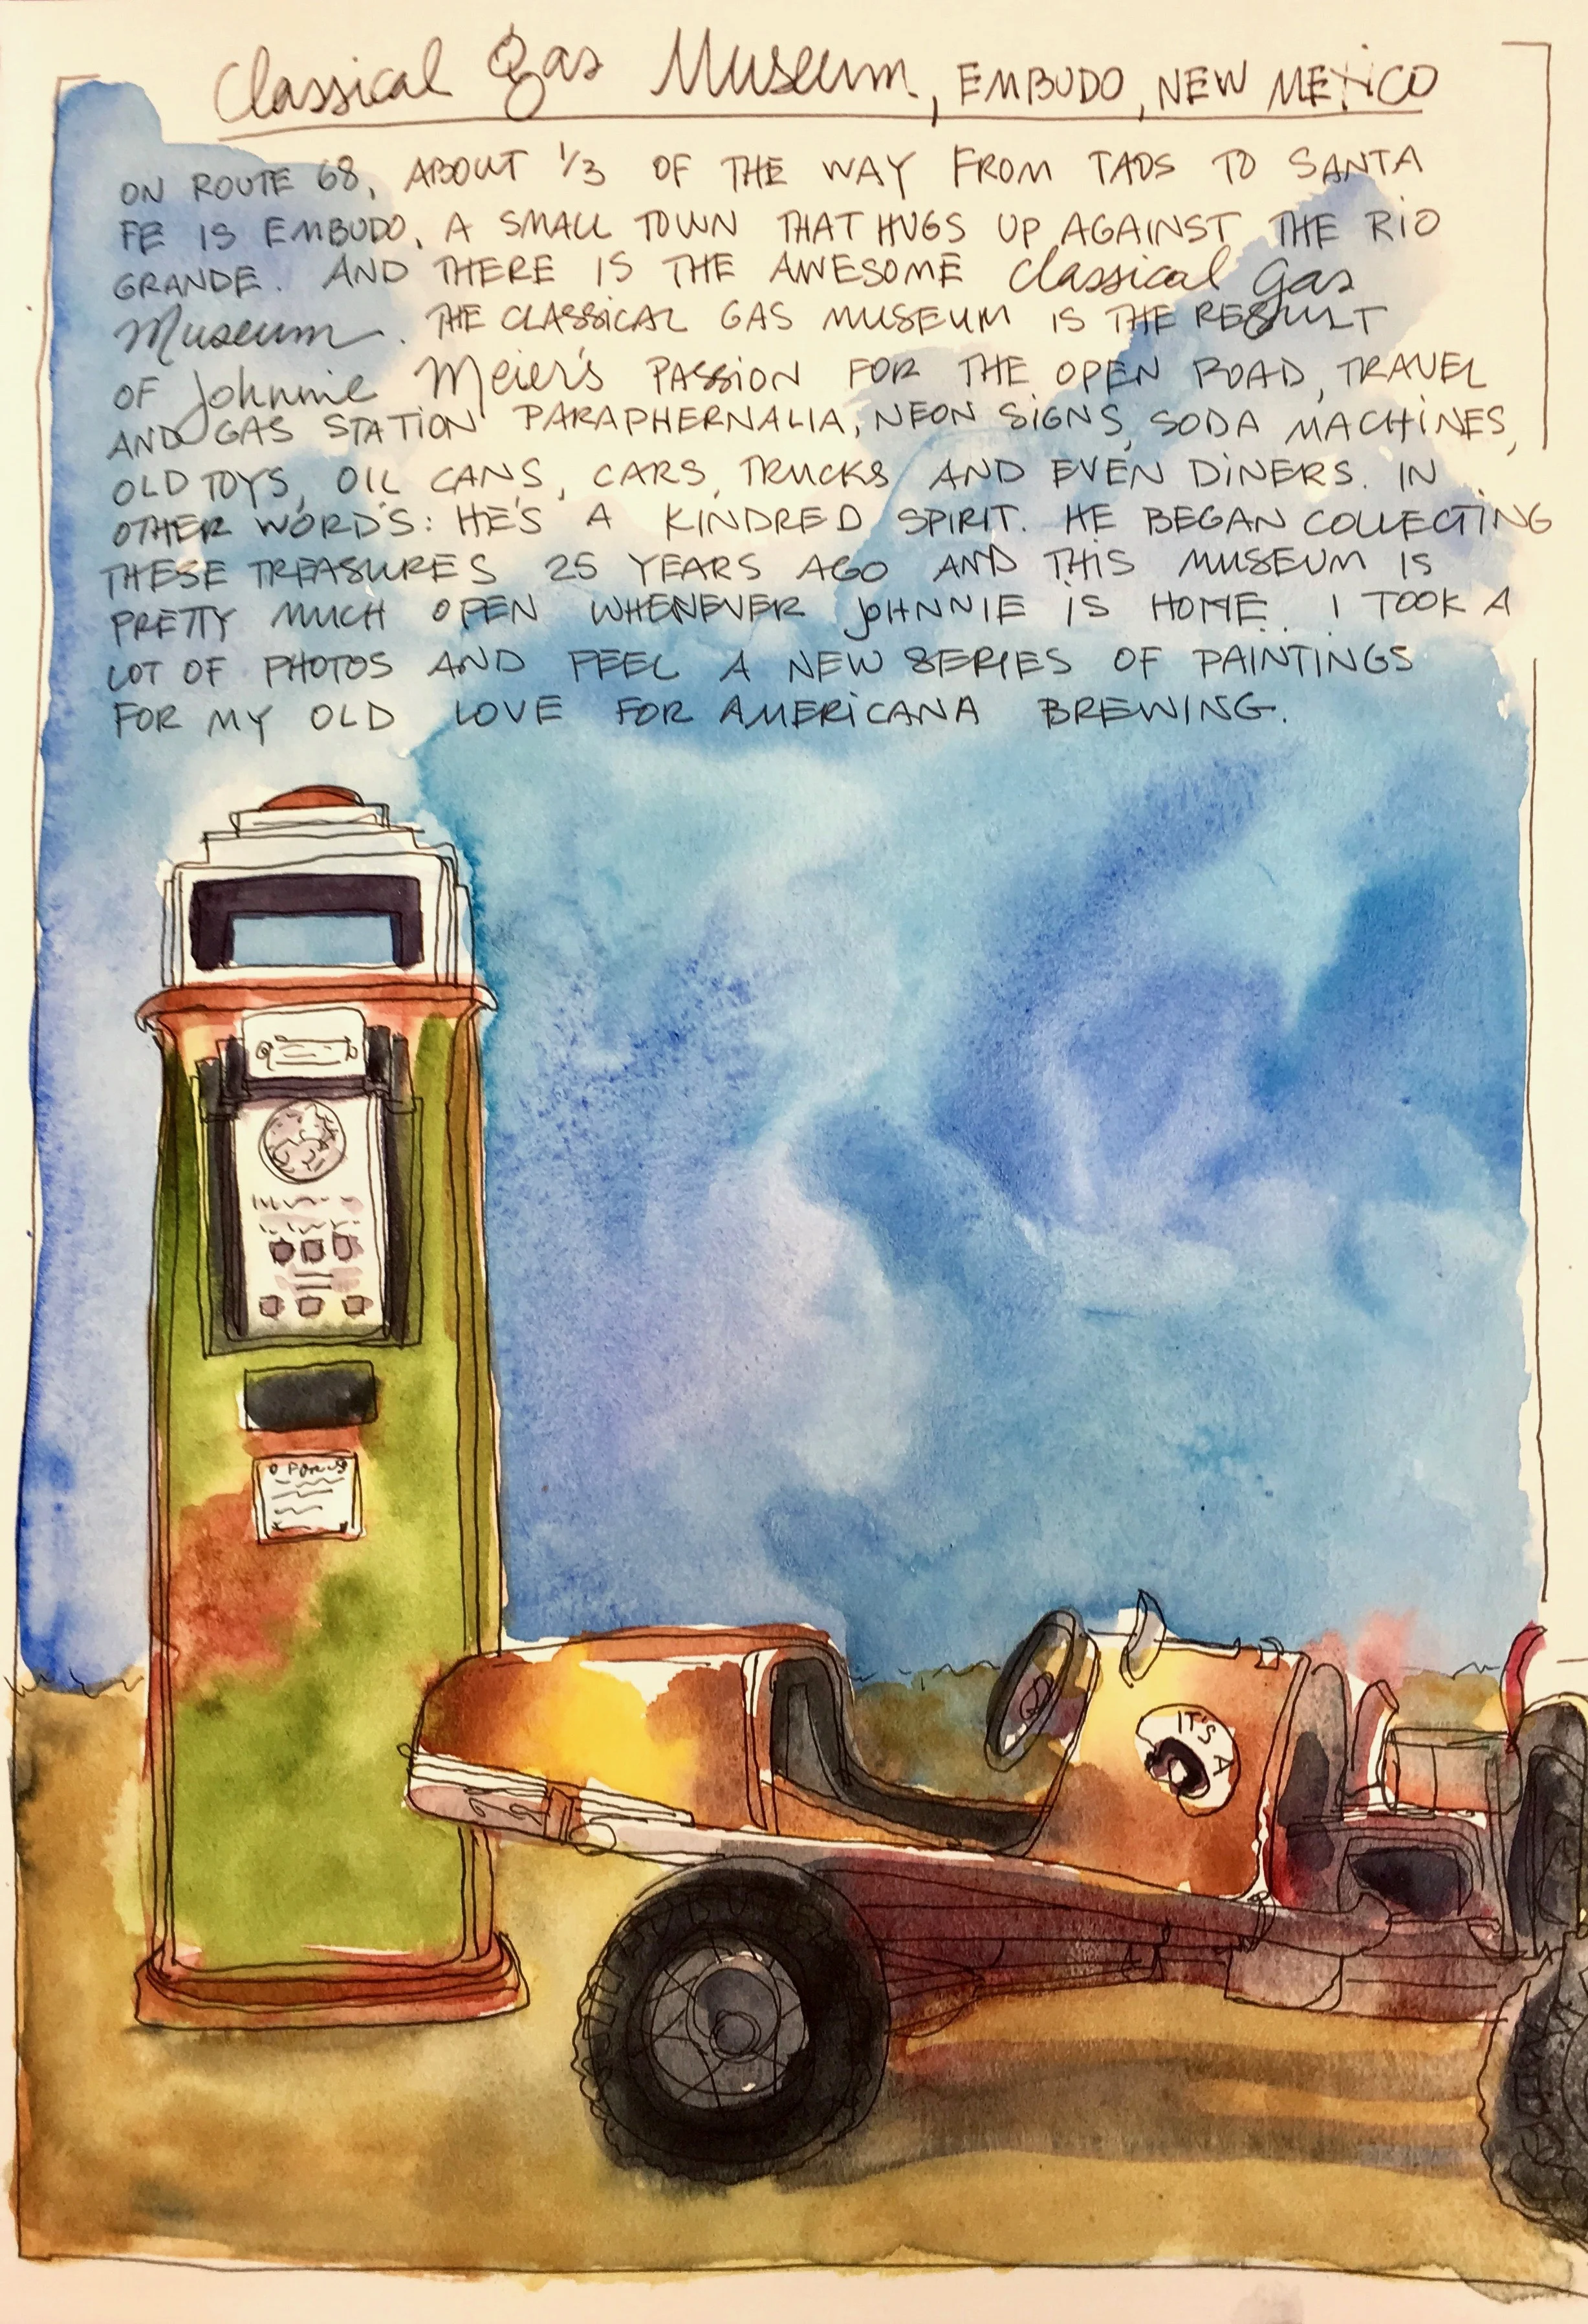 Classical Gas Museum, EMBUDO, NEW MEXICO
ON ROUTE 68, ABOUT 1/3 OF THE WAY FROM TAOS TO SANTA
FE IS EMBUDO, A SMALL TOWN THAT HUGS UP AGAINST THE RIO
GRANDE. AND THERE IS THE AWESOME Classical Gas
Museum. THE CLASSICAL GAS MUSEUM IS THE RESULT
OF Johnnie Meier's PASSION FOR THE OPEN ROAD, TRAVEL
AND GAS STATION PARAPHERNALIA, NEON SIGNS, SODA MACHINES,
OLD TOYS, OIL CANS, CARS, TRUCKS AND EVEN DINERS. IN
OTHER WORDS: HE'S A KINDRED SPIRIT. HE BEGAN COLLECTING
THESE TREASURES 25 YEARS AGO AND THIS MUSEUM IS
PRETTY MUCH OPEN WHENEVER JOHNNIE IS HOME. I TOOK A
LOT OF PHOTOS AND FEEL A NEW SERIES OF PAINTINGS
FOR MY OLD LOVE FOR AMERICANA BREWING.
IT'S A